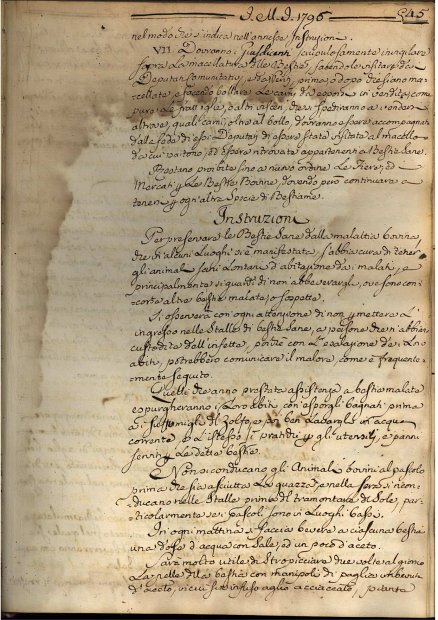 I. M. I. 1796
545
nel modo che s'indica nell'annesse Instruzioni.
VII. Dovranno i Giusdicenti scrupolosamente invigilare
sopra la macellatura delle Bestie, facendole visitare da
Deputati Comunitativi, e da essi, prima, e dopo che siano ma-
cellate, e facendo bollare le carni, che si espongono in vendita, come
pure le frattaglie, ed altri visceri, che si spediranno a vendere
altrove, quali carni, oltre al bollo, dovranno essere accompagnate
dalla fede di essi Deputati di essere state visitate al macello
da cui partono, ed essere ritrovate appartenenti a Bestie sane.
Restino proibite sino a nuovo ordine le Fiere, ed
Mercati per le Bestie Bovine, dovendo però continuare a
tenersi per ogn'altra Specie di Bestiame.
Instruzioni
Per preservare le Bestie Sane dalla malattia bovina
che in alcuni Luoghi si è manifestata, s'abbia cura di tener
gli animali sani lontani d'abitazione da' malati, e
principalmente si guardi di non abbeverargli, ove sono con-
corse altre bestie malate, o sospette.
Si osserverà con ogni attenzione di non permettere l'
ingresso nelle Stalle di bestie sane, a persone che abbian
custodite dell'infette, poichè con l'esalazione de' loro
abiti, potrebbero comunicare il malore, come è frequente-
mente seguito.
Quelle che anno prestata assistenza a bestie malate
espurgheranno i loro abiti con esporgli bagnati prima
a' suffumigi del Zolfo, e poi ben lavarli in acqua
corrente, e l'istesso si pratichi per gli utensili, e panni
serviti per le dette bestie.
Non si conducano gli Animali bovini al pascolo
prima che sia asciutta la guazza, e nella sera si ricon-
ducano nelle Stalle prima del tramontare del Sole, par-
ticolarmente se i pascoli sono in Luoghi bassi.
In ogni mattina si faccia bevere a ciascuna bestia
una dose d'acqua con Sale, ed un poco d'aceto.
Sarà molto utile di stropicciare due volte al giorno
la pelle della bestia con manipoli di paglia imbevuta
d'aceto, in cui sia infuso aglio acciaccato, piante